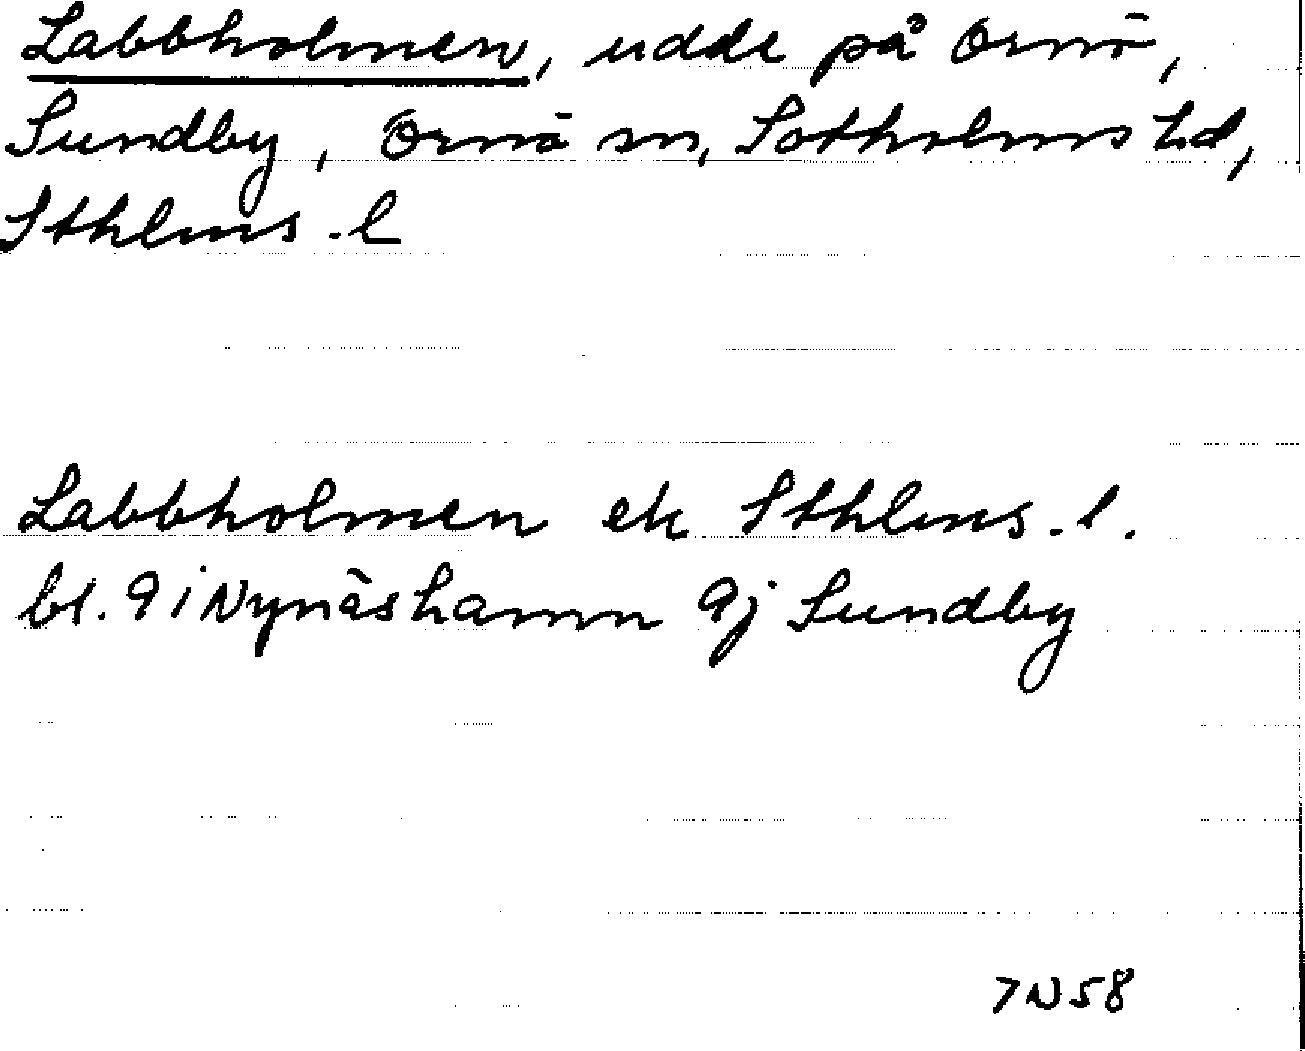 Labbholmen, udde på Ornö,
Sundby, Ornö sn, Sotholms hd,
Sthlms. l
Labbholmen ek Sthlms. l.
bl. 9 i Nynäshamn 9j Sundby
7N58